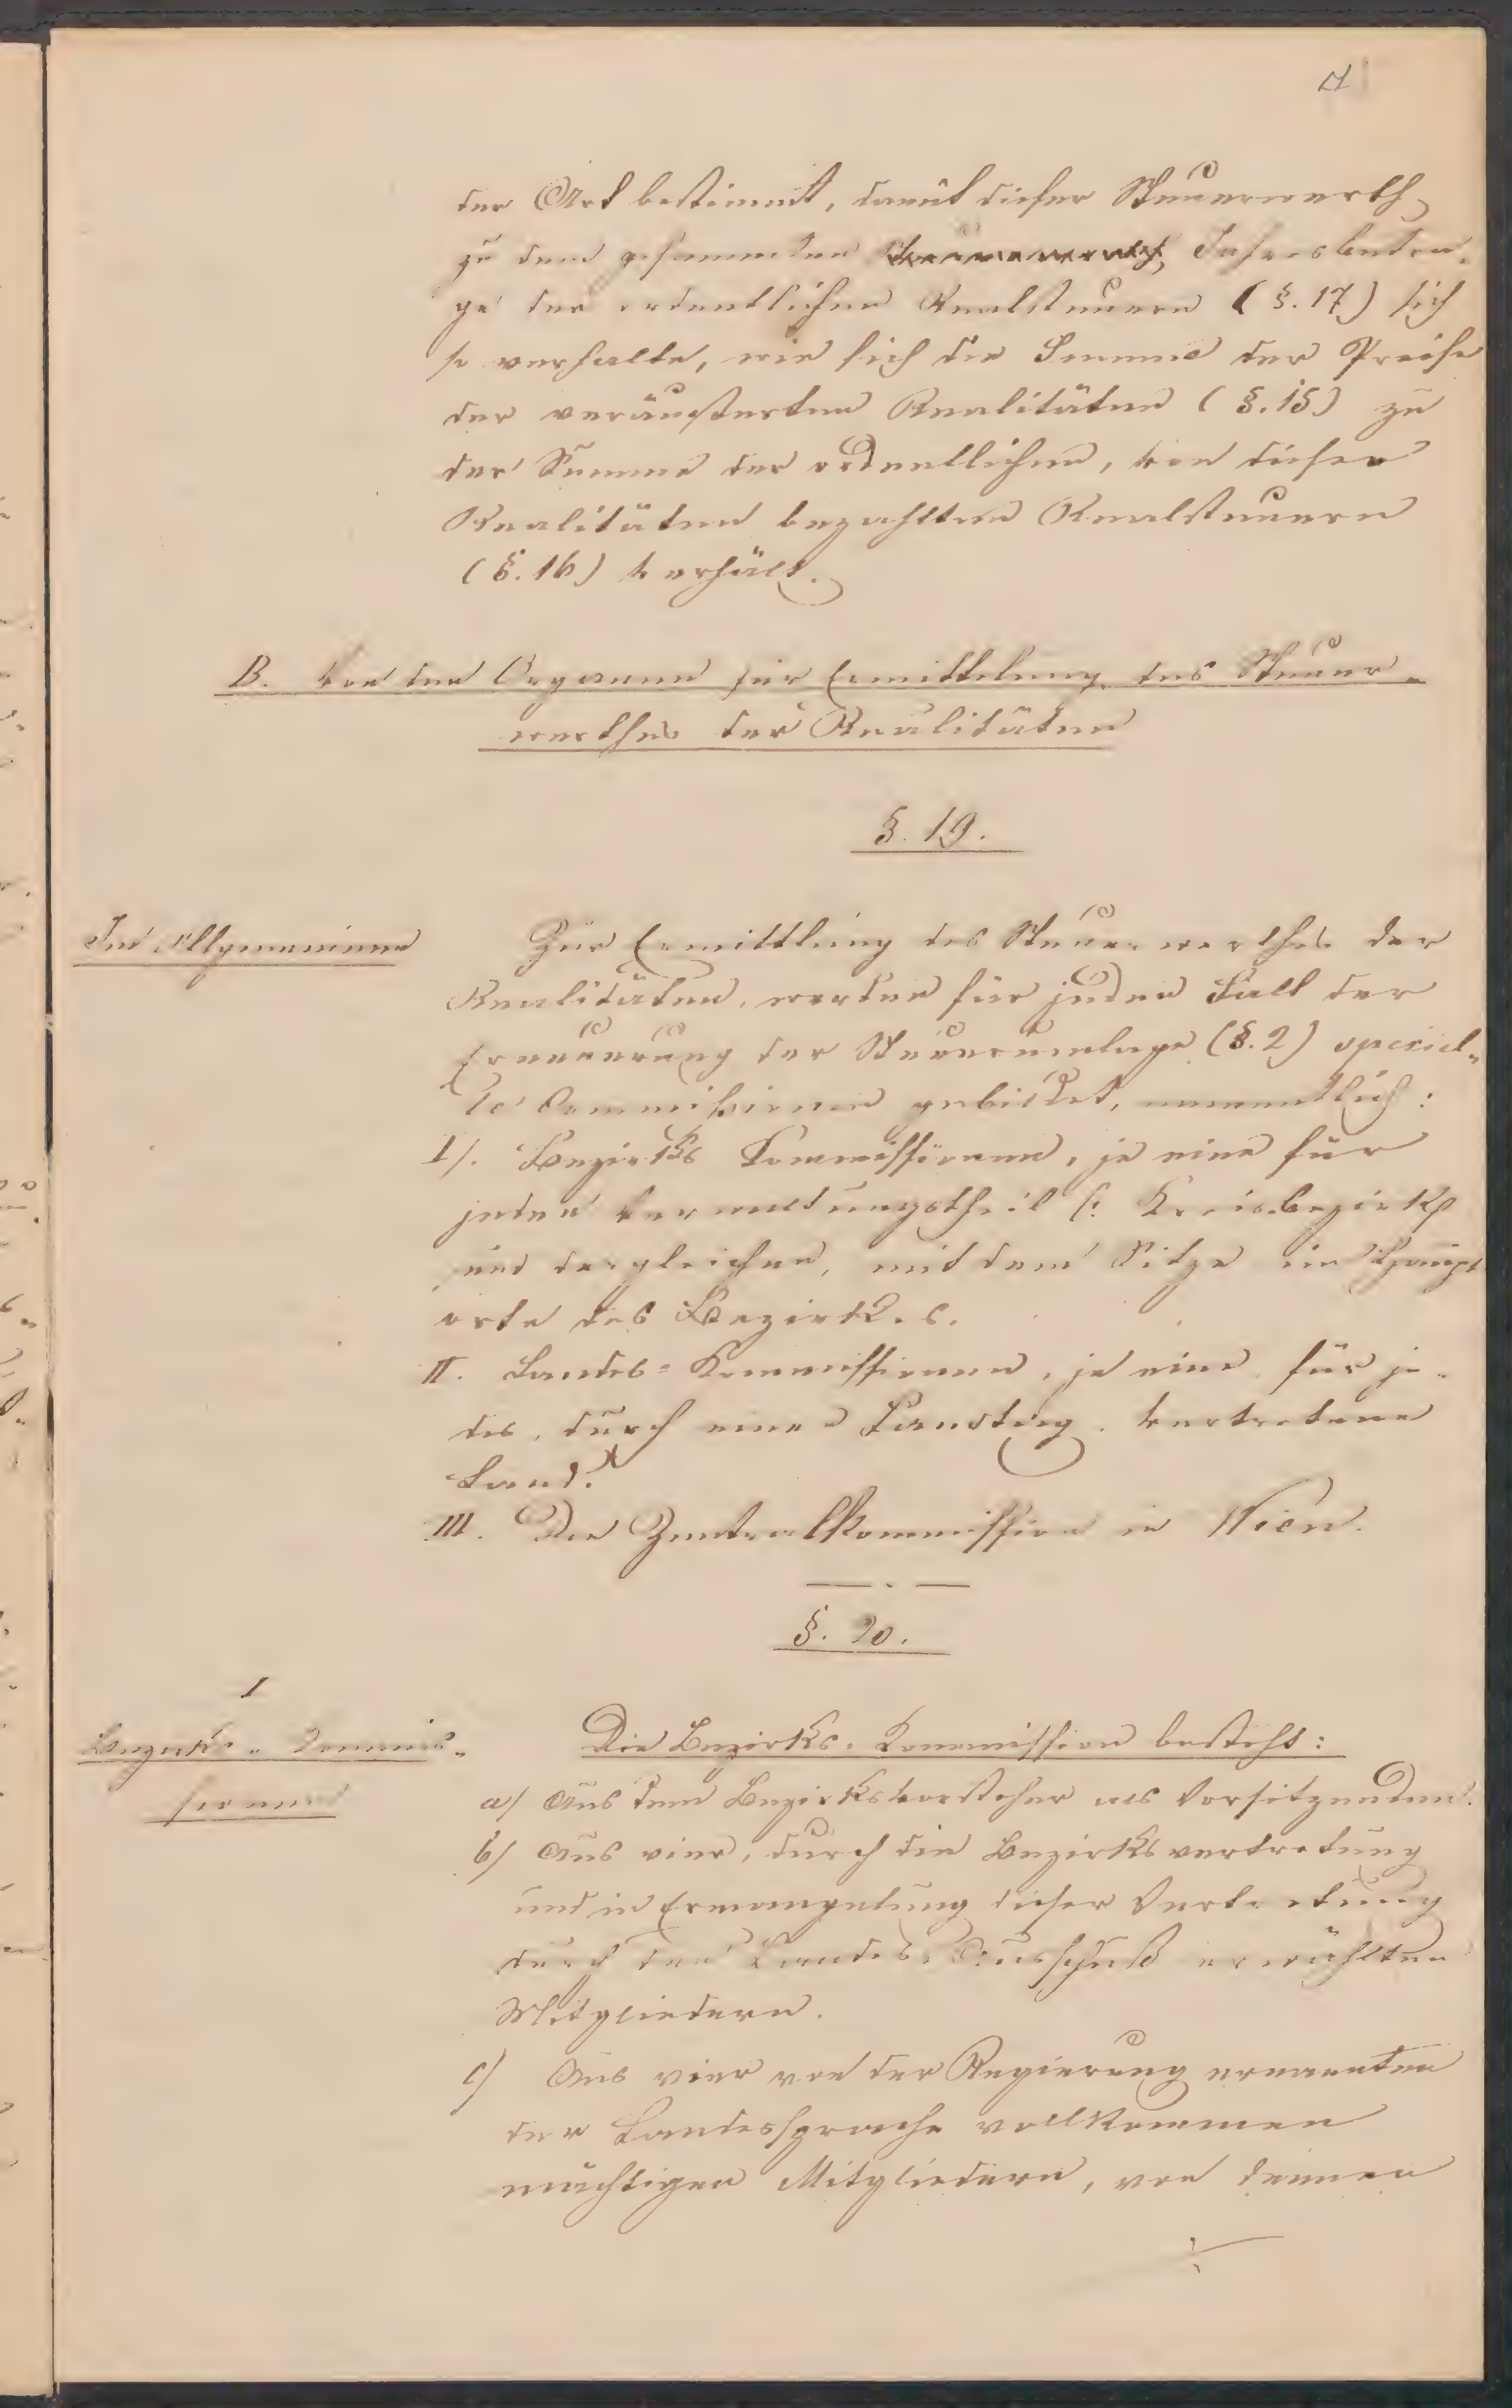 der Art bestimmt, damit dieser Steuerwerth
zu dem gesammten Jahresbetra-
ge der ordentlichen Realsteuern (§. 17) sich
so verhalte, wie sich die Summe der Preise
der veräußerten Realitäten (§. 15) zu
der Summe der ordentlichen, von diesen
Realitäten bezahlten Realsteuern
(§. 16) verhält.
B. Von den Organen für Ermittelung des Steuer-
werthes der Realitäten
§. 19.
Im Allgemeinen
Zur Ermittlung des Steuerwerthes der
Realitäten, werden für jeden Fall der
Erneuerung der Steuerumlage (§. 2) speciel-
le Commissionen gebildet, namentlich:
I/. Bezirks Kommissionen, je eine für
jeden Verwaltungstheil (: Kreisbezirk
und dergleichen, mit dem Sitze im Haupt
orte des Bezirkes.
II. Landes-Kommissionen, je eine für je-
des, durch einen Landtag vertretene
Land.
III. Die Zentralkommission in Wien.
§. 20.
I
Bezirks-Kommis-
sionen
Die Bezirks-Kommission besteht:
a/ Aus dem Bezirksvorsteher als Vorsitzenden.
b/ Aus vier, durch die Bezirksvertretung
und in Ermangelung dieser Vertretung
durch den Landes-Ausschuß erwählten
Mitgliedern.
c/ Aus vier von der Regierung ernannten
der Landessprache vollkommen
mächtigen Mitgliedern, von denen